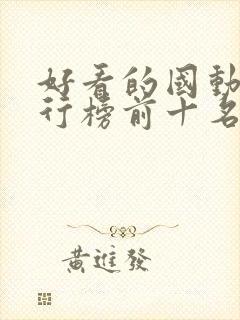 好看的國動
行榜前十名
黃進發